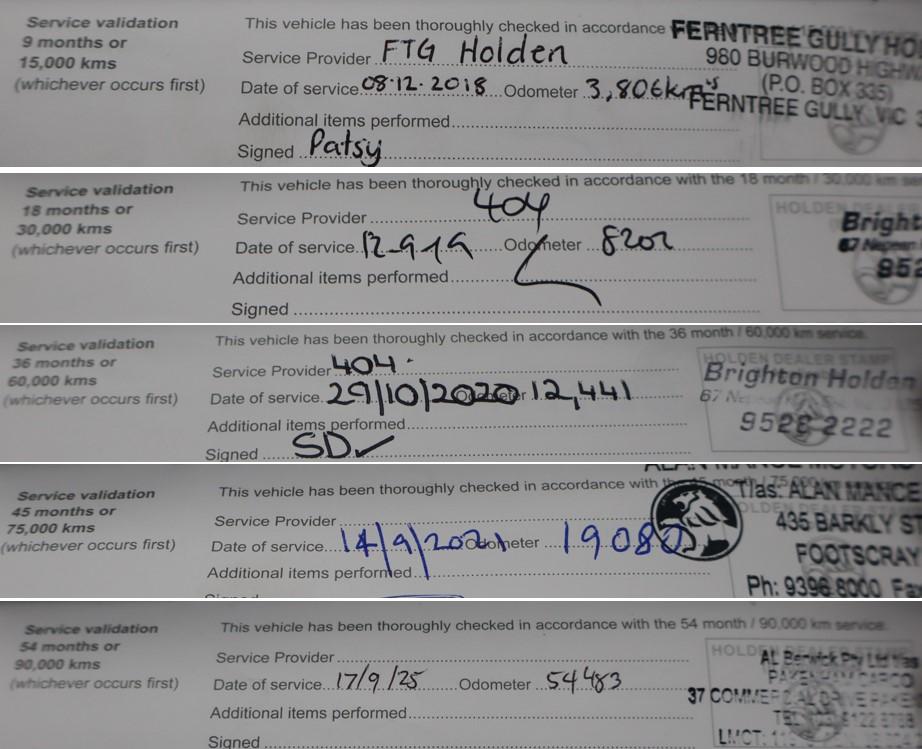 Service validation
9 months or
15,000 kms
(whichever occurs first)
This vehicle has been thoroughly checked in accordance
Service Provider FTG Holden
Date of service 08·12·2018 Odometer 3,806km's
Additional items performed
Signed Patsy
FERNTREE GULLY HO
980 BURWOOD HIGHW
(P.O. BOX 335)
FERNTREE GULLY VIC 3
Service validation
18 months or
30,000 kms
(whichever occurs first)
This vehicle has been thoroughly checked in accordance with the 18 month / 30,000 km
Service Provider 404
Date of service 12-9-19 Odometer 8202
Additional items performed
Signed
HOLDEN DEALER
Bright
67 Nepean
952
Service validation
36 months or
60,000 kms
(whichever occurs first)
This vehicle has been thoroughly checked in accordance with the 36 month / 60,000 km service.
Service Provider 404
Date of service 29/10/2020 Odometer 12,441
Additional items performed
Signed SD
HOLDEN DEALER STAMP
Brighton Holden
67
9528 2222
Service validation
45 months or
75,000 kms
(whichever occurs first)
This vehicle has been thoroughly checked in accordance with the 45 month / 75,000
Service Provider
Date of service 14/9/2021 Odometer 19080
Additional items performed
T/as: ALAN MANCE
435 BARKLY ST
FOOTSCRAY
Ph: 9396 8000 Fax
Service validation
54 months or
90,000 kms
(whichever occurs first)
This vehicle has been thoroughly checked in accordance with the 54 month / 90,000 km service.
Service Provider
Date of service 17/9/25 Odometer 54483
Additional items performed
Signed
AL Berwick Pty Ltd t/as
37 COMMERCIAL DRIVE
LMCT: